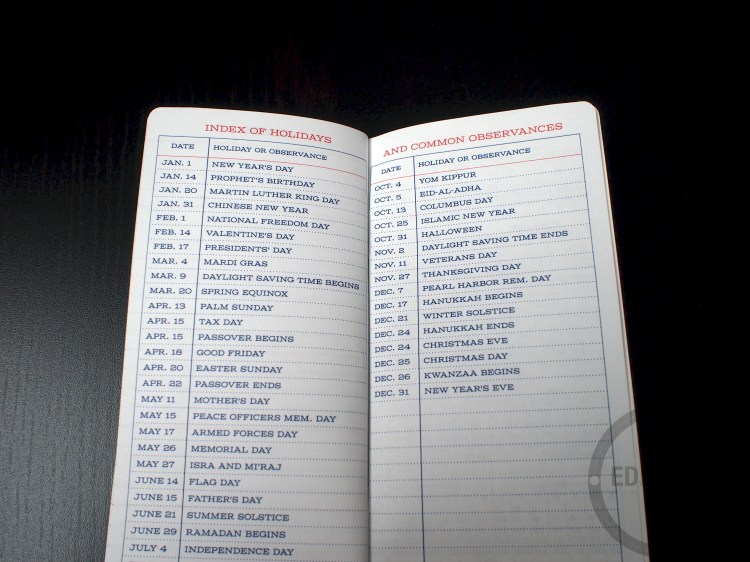 INDEX OF HOLIDAYS
DATE HOLIDAY OR OBSERVANCE
JAN. 1 NEW YEAR'S DAY
JAN. 14 PROPHET'S BIRTHDAY
JAN. 20 MARTIN LUTHER KING DAY
JAN. 31 CHINESE NEW YEAR
FEB. 1 NATIONAL FREEDOM DAY
FEB. 14 VALENTINE'S DAY
FEB. 17 PRESIDENTS' DAY
MAR. 4 MARDI GRAS
MAR. 9 DAYLIGHT SAVING TIME BEGINS
MAR. 20 SPRING EQUINOX
APR. 13 PALM SUNDAY
APR. 15 TAX DAY
APR. 15 PASSOVER BEGINS
APR. 18 GOOD FRIDAY
APR. 20 EASTER SUNDAY
APR. 22 PASSOVER ENDS
MAY 11 MOTHER'S DAY
MAY 15 PEACE OFFICERS MEM. DAY
MAY 17 ARMED FORCES DAY
MAY 26 MEMORIAL DAY
MAY 27 ISRA AND MI'RAJ
JUNE 14 FLAG DAY
JUNE 15 FATHER'S DAY
JUNE 21 SUMMER SOLSTICE
JUNE 29 RAMADAN BEGINS
JULY 4 INDEPENDENCE DAY
AND COMMON OBSERVANCES
DATE HOLIDAY OR OBSERVANCE
OCT. 4 YOM KIPPUR
OCT. 5 EID-AL-ADHA
OCT. 13 COLUMBUS DAY
OCT. 25 ISLAMIC NEW YEAR
OCT. 31 HALLOWEEN
NOV. 2 DAYLIGHT SAVING TIME ENDS
NOV. 11 VETERANS DAY
NOV. 27 THANKSGIVING DAY
DEC. 7 PEARL HARBOR REM. DAY
DEC. 17 HANUKKAH BEGINS
DEC. 21 WINTER SOLSTICE
DEC. 24 HANUKKAH ENDS
DEC. 24 CHRISTMAS EVE
DEC. 25 CHRISTMAS DAY
DEC. 26 KWANZAA BEGINS
DEC. 31 NEW YEAR'S EVE
ED